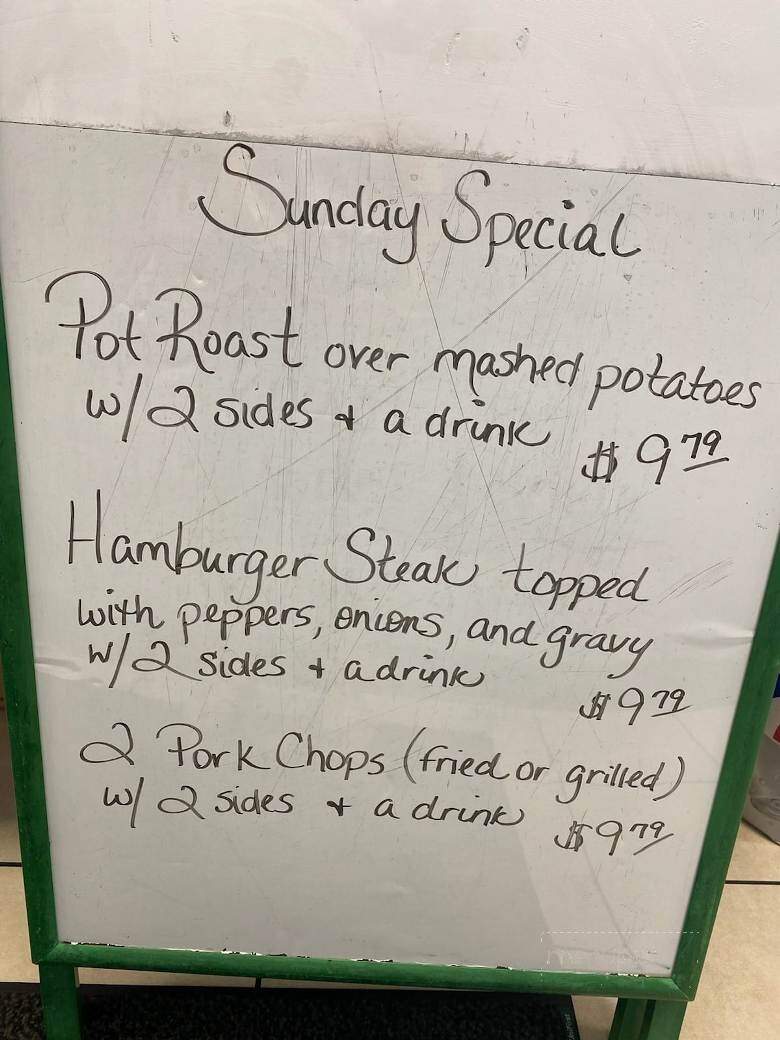 Sunday Special
Pot Roast over mashed potatoes
w/ 2 sides + a drink $9.79
Hamburger Steak topped
with peppers, onions, and gravy
w/ 2 sides + a drink $9.79
2 Pork Chops (fried or grilled)
w/ 2 sides + a drink $9.79